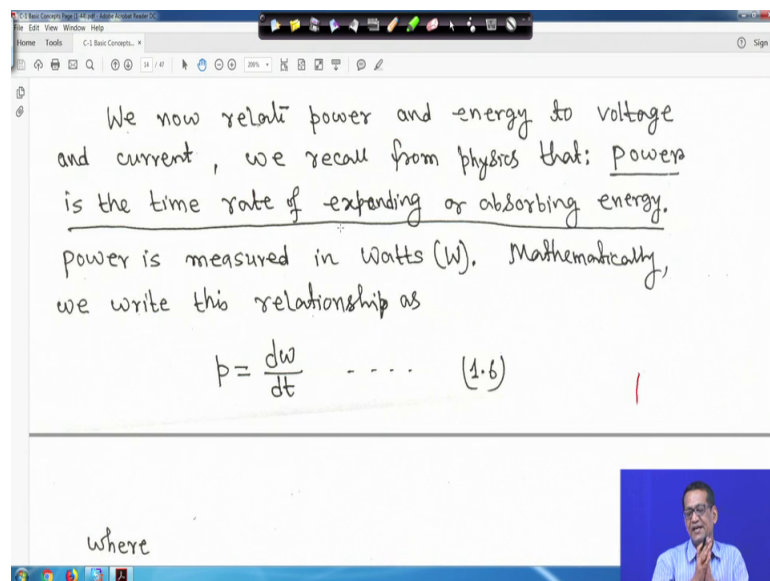 C-1 Basic Concepts Page (1-44).pdf - Adobe Acrobat Reader DC
File Edit View Window Help
Home Tools C-1 Basic Concepts... × Sign
14 / 47 200%
We now relate power and energy to voltage
and current, we recall from physics that: power
is the time rate of expending or absorbing energy.
power is measured in watts (W). Mathematically,
we write this relationship as
p = dw/dt ---- (1.6)
where